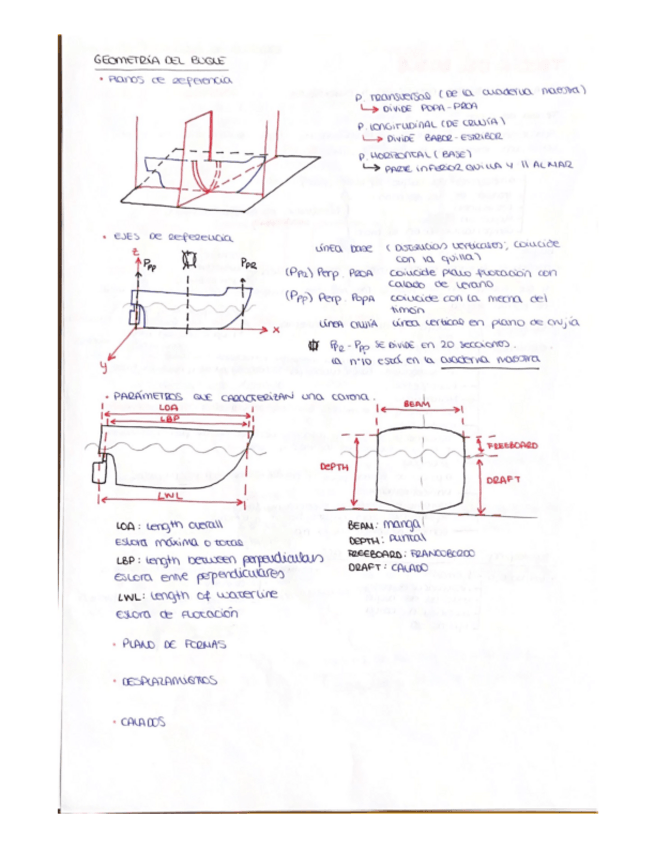 GEOMETRÍA DEL BUQUE
• Planos de referencia
P. Transversal (De la cuaderna maestra)
↳ DIVIDE POPA-PROA
P. LONGITUDINAL (DE CRUJÍA)
↳ DIVIDE BABOR-ESTRIBOR
P. HORIZONTAL (BASE)
↳ PARTE INFERIOR QUILLA Y // AL MAR
• EJES DE REFERENCIA
z
PPP
PPR
x
y
LÍNEA BASE (DISTANCIAS VERTICALES; COINCIDE
con la quilla)
(PPR) Perp. PROA coincide plano flotación con
calado de verano
(PPP) Perp. POPA coincide con la mecha del
timón
LÍNEA CRUJÍA línea vertical en plano de crujía
PPR-PPP SE DIVIDE EN 20 SECCIONES.
la nº10 está en la cuaderna maestra
• PARÁMETROS QUE CARACTERIZAN una carena.
LOA
LBP
LWL
BEAM
DEPTH
FREEBOARD
DRAFT
LOA: Length overall
Eslora máxima o total
LBP: Length between perpendiculars
Eslora entre perpendiculares
LWL: Length of waterline
Eslora de flotación
BEAM: Manga
DEPTH: Puntal
FREEBOARD: FRANCOBORDO
DRAFT: CALADO
• PLANO DE FORMAS
• DESPLAZAMIENTOS
• CALADOS